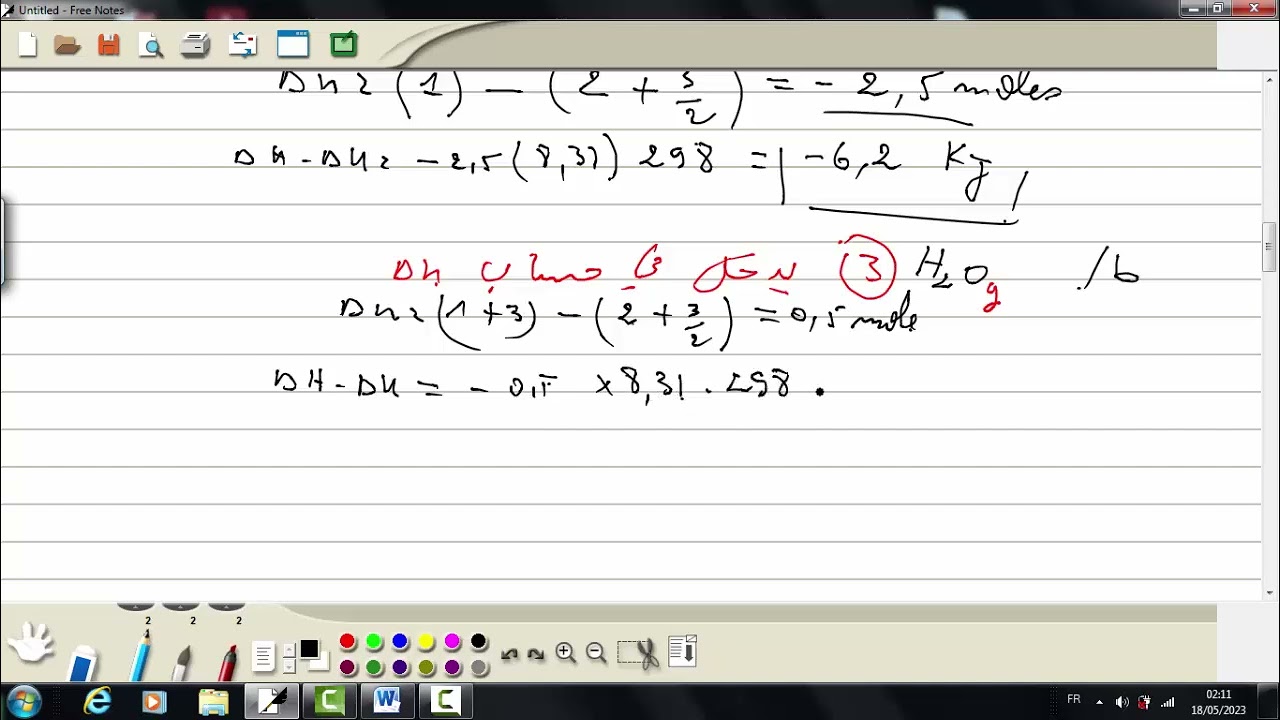 Untitled - Free Notes
Δn = (1) - (2 + 3/2) = - 2,5 moles
ΔH - ΔU = - 2,5 (8,31) 298 = - 6,2 KJ
b / H₂Og (3) Δn
Δn = (1 + 3) - (2 + 3/2) = 0,5 mole
ΔH - ΔU = - 0,5 × 8,31 . 298 .
2 2 2
1
FR 02:11
18/05/2023